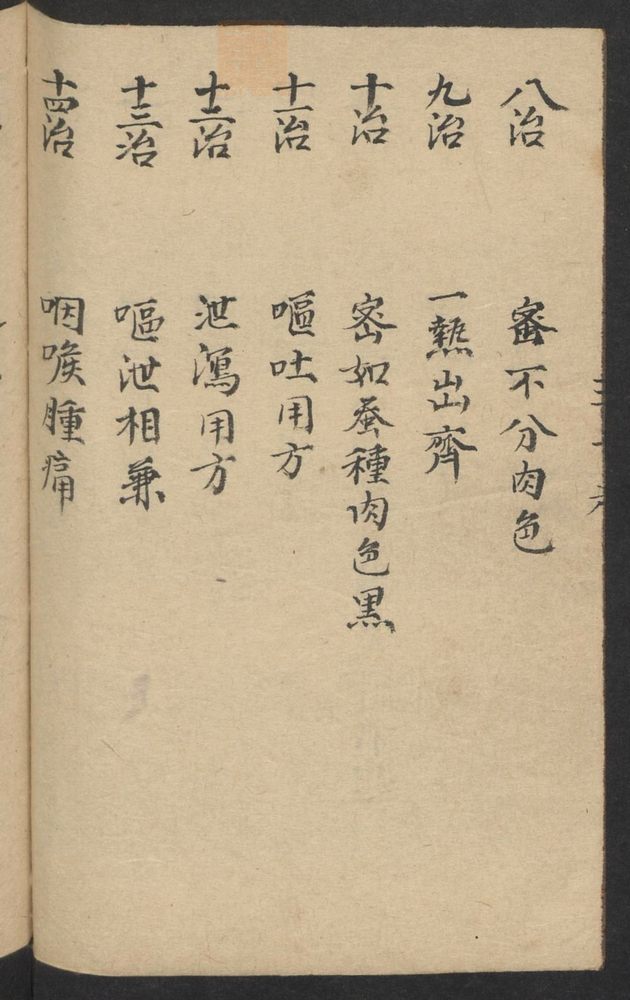 八治 密不分肉色
九治 一熱出齊
十治 密如蚕種肉色黑
十一治 嘔吐用方
十二治 泄瀉用方
十三治 嘔泄相兼
十四治 咽喉腫痛